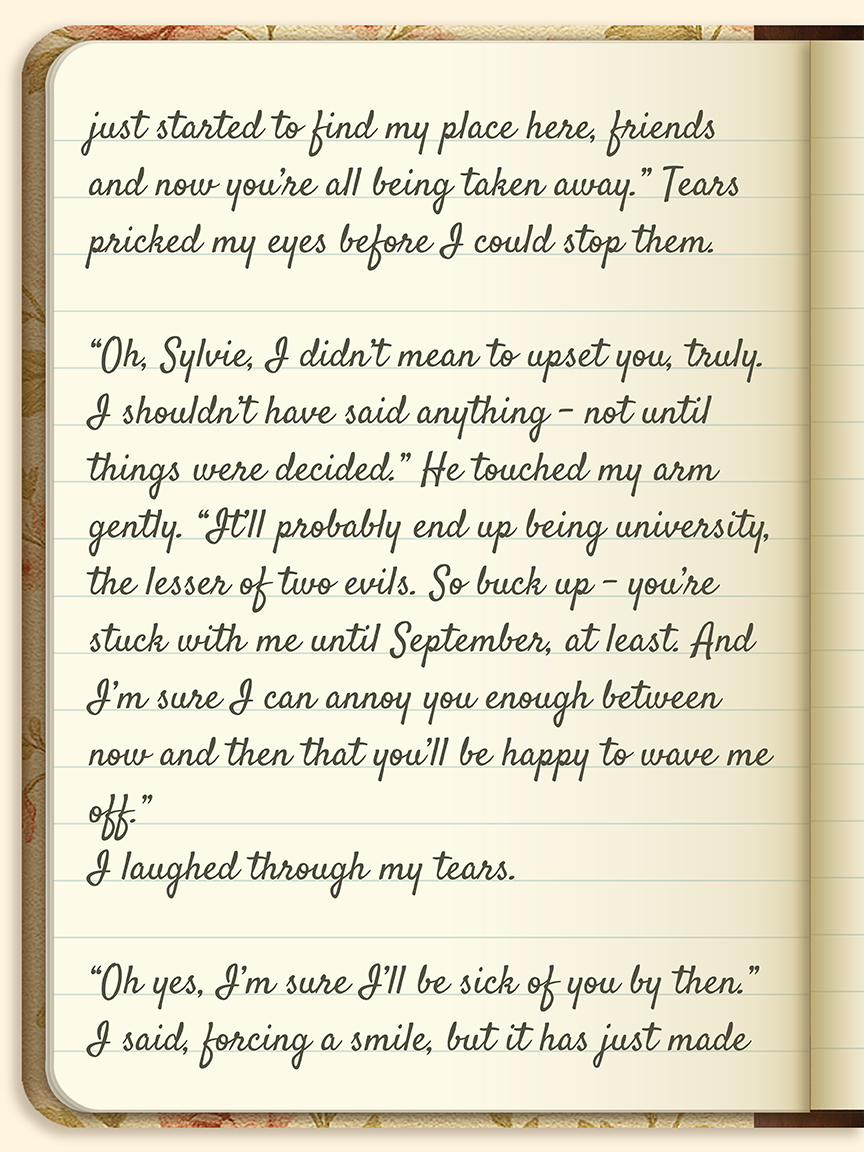 just started to find my place here, friends
and now you’re all being taken away.” Tears
pricked my eyes before I could stop them.
“Oh, Sylvie, I didn’t mean to upset you, truly.
I shouldn’t have said anything – not until
things were decided.” He touched my arm
gently. “It’ll probably end up being university,
the lesser of two evils. So buck up – you’re
stuck with me until September, at least. And
I’m sure I can annoy you enough between
now and then that you’ll be happy to wave me
off.”
I laughed through my tears.
“Oh yes, I’m sure I’ll be sick of you by then.”
I said, forcing a smile, but it has just made